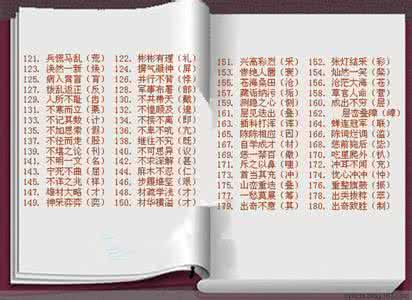 121. 兵慌马乱（荒） 122. 彬彬有理（礼）
123. 决然一新（焕） 124. 摒气凝神（屏）
125. 病入膏盲（肓） 126. 并行不背（悖）
127. 拨乱返正（反） 128. 军事布署（部）
129. 人所不耻（齿） 130. 不共带天（戴）
131. 不寒而立（栗） 132. 不惶顾及（遑）
133. 不记其数（计） 134. 不接不离（即）
135. 不加思索（假） 136. 不卑不吭（亢）
137. 不径而走（胫） 138. 继往不究（既）
139. 不堪之论（刊） 140. 不可思异（议）
141. 不明一文（名） 142. 不求深解（甚）
143. 宁死不曲（屈） 144. 麻木不忍（仁）
145. 不详之兆（祥） 146. 步履维坚（艰）
147. 雄材大略（才） 148. 材疏学浅（才）
149. 神采弈弈（奕） 150. 材华横溢（才）
151. 兴高彩烈（采） 152. 张灯结采（彩）
153. 惨绝人圜（寰） 154. 灿然一笑（粲）
155. 苍海桑田（沧） 156. 沧茫大海（苍）
157. 藏诟纳污（垢） 158. 草官人命（菅）
159. 测隐之心（恻） 160. 成出不穷（层）
161. 层见迭出（叠） 162. 层峦叠障（嶂）
163. 插科打浑（诨） 164. 蝉连冠军（联）
165. 陈陈相应（因） 166. 陈词烂调（滥）
167. 自学成材（才） 168. 惩前毖后（毖）
169. 惩一禁百（儆） 170. 吃里爬外（扒）
171. 斥之以鼻（嗤） 172. 冲耳不闻（充）
173. 首当其充（冲） 174. 优心冲冲（忡）
175. 山峦重迭（叠） 176. 重整旗豉（振）
177. 一愁莫展（筹） 178. 出类拔粹（萃）
179. 出奇不意（其） 180. 出奇致胜（制）